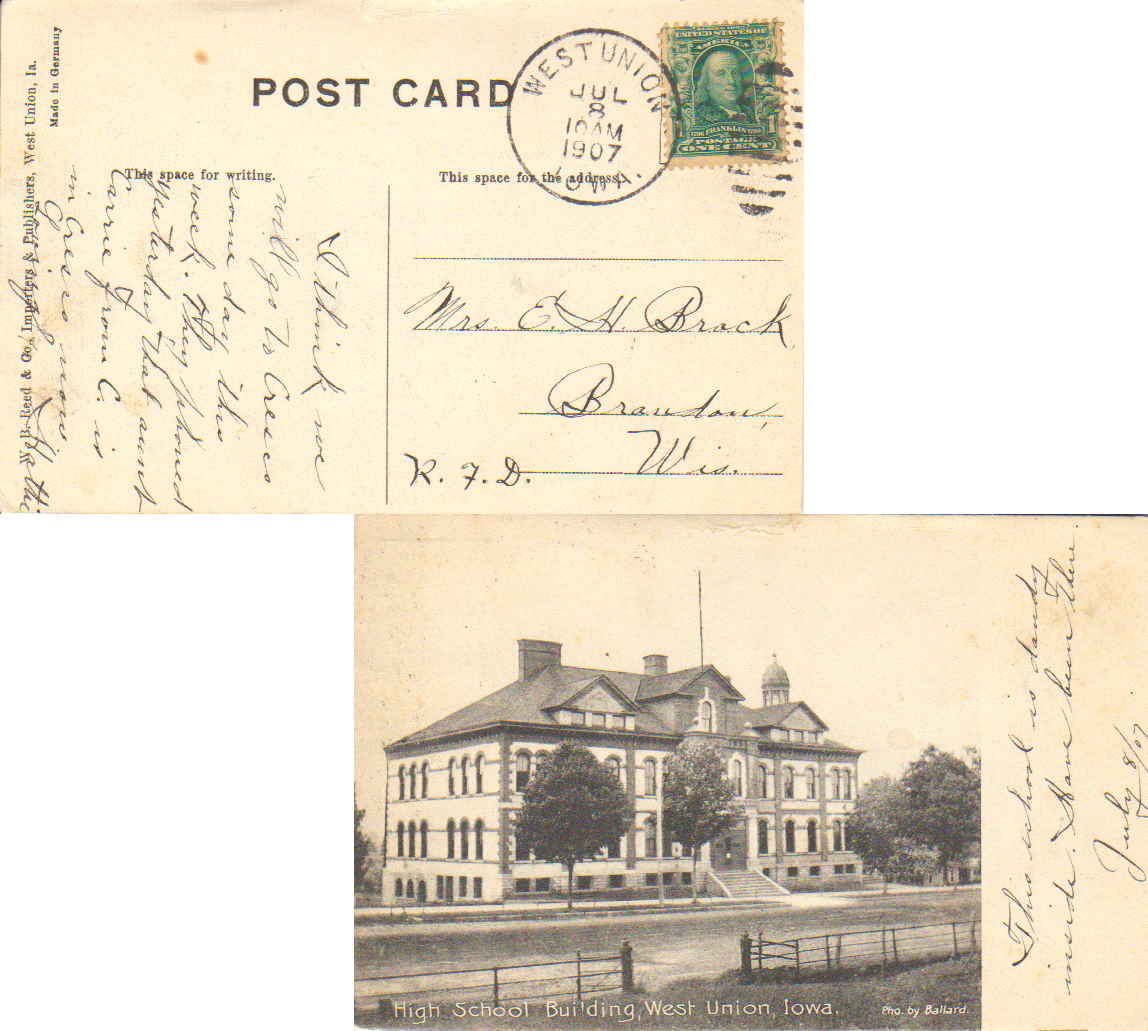 POST CARD
WEST UNION
JUL
8
10AM
1907
IOWA.
UNITED STATES OF
AMERICA
FRANKLIN
POSTAGE
ONE CENT
This space for writing.
This space for the address.
I think we
will go to Cresco
some day this
week. They phoned
yesterday that aunt
Carrie from C. is
in Cresco now.
Mrs. E. H. Brack
Brandon,
Wis.
R. F. D.
W. B. Reed & Co., Importers & Publishers, West Union, Ia.
Made in Germany
High School Building, West Union, Iowa.
Pho. by Ballard.
This school is dandy
inside. Have been there.
July 8/07